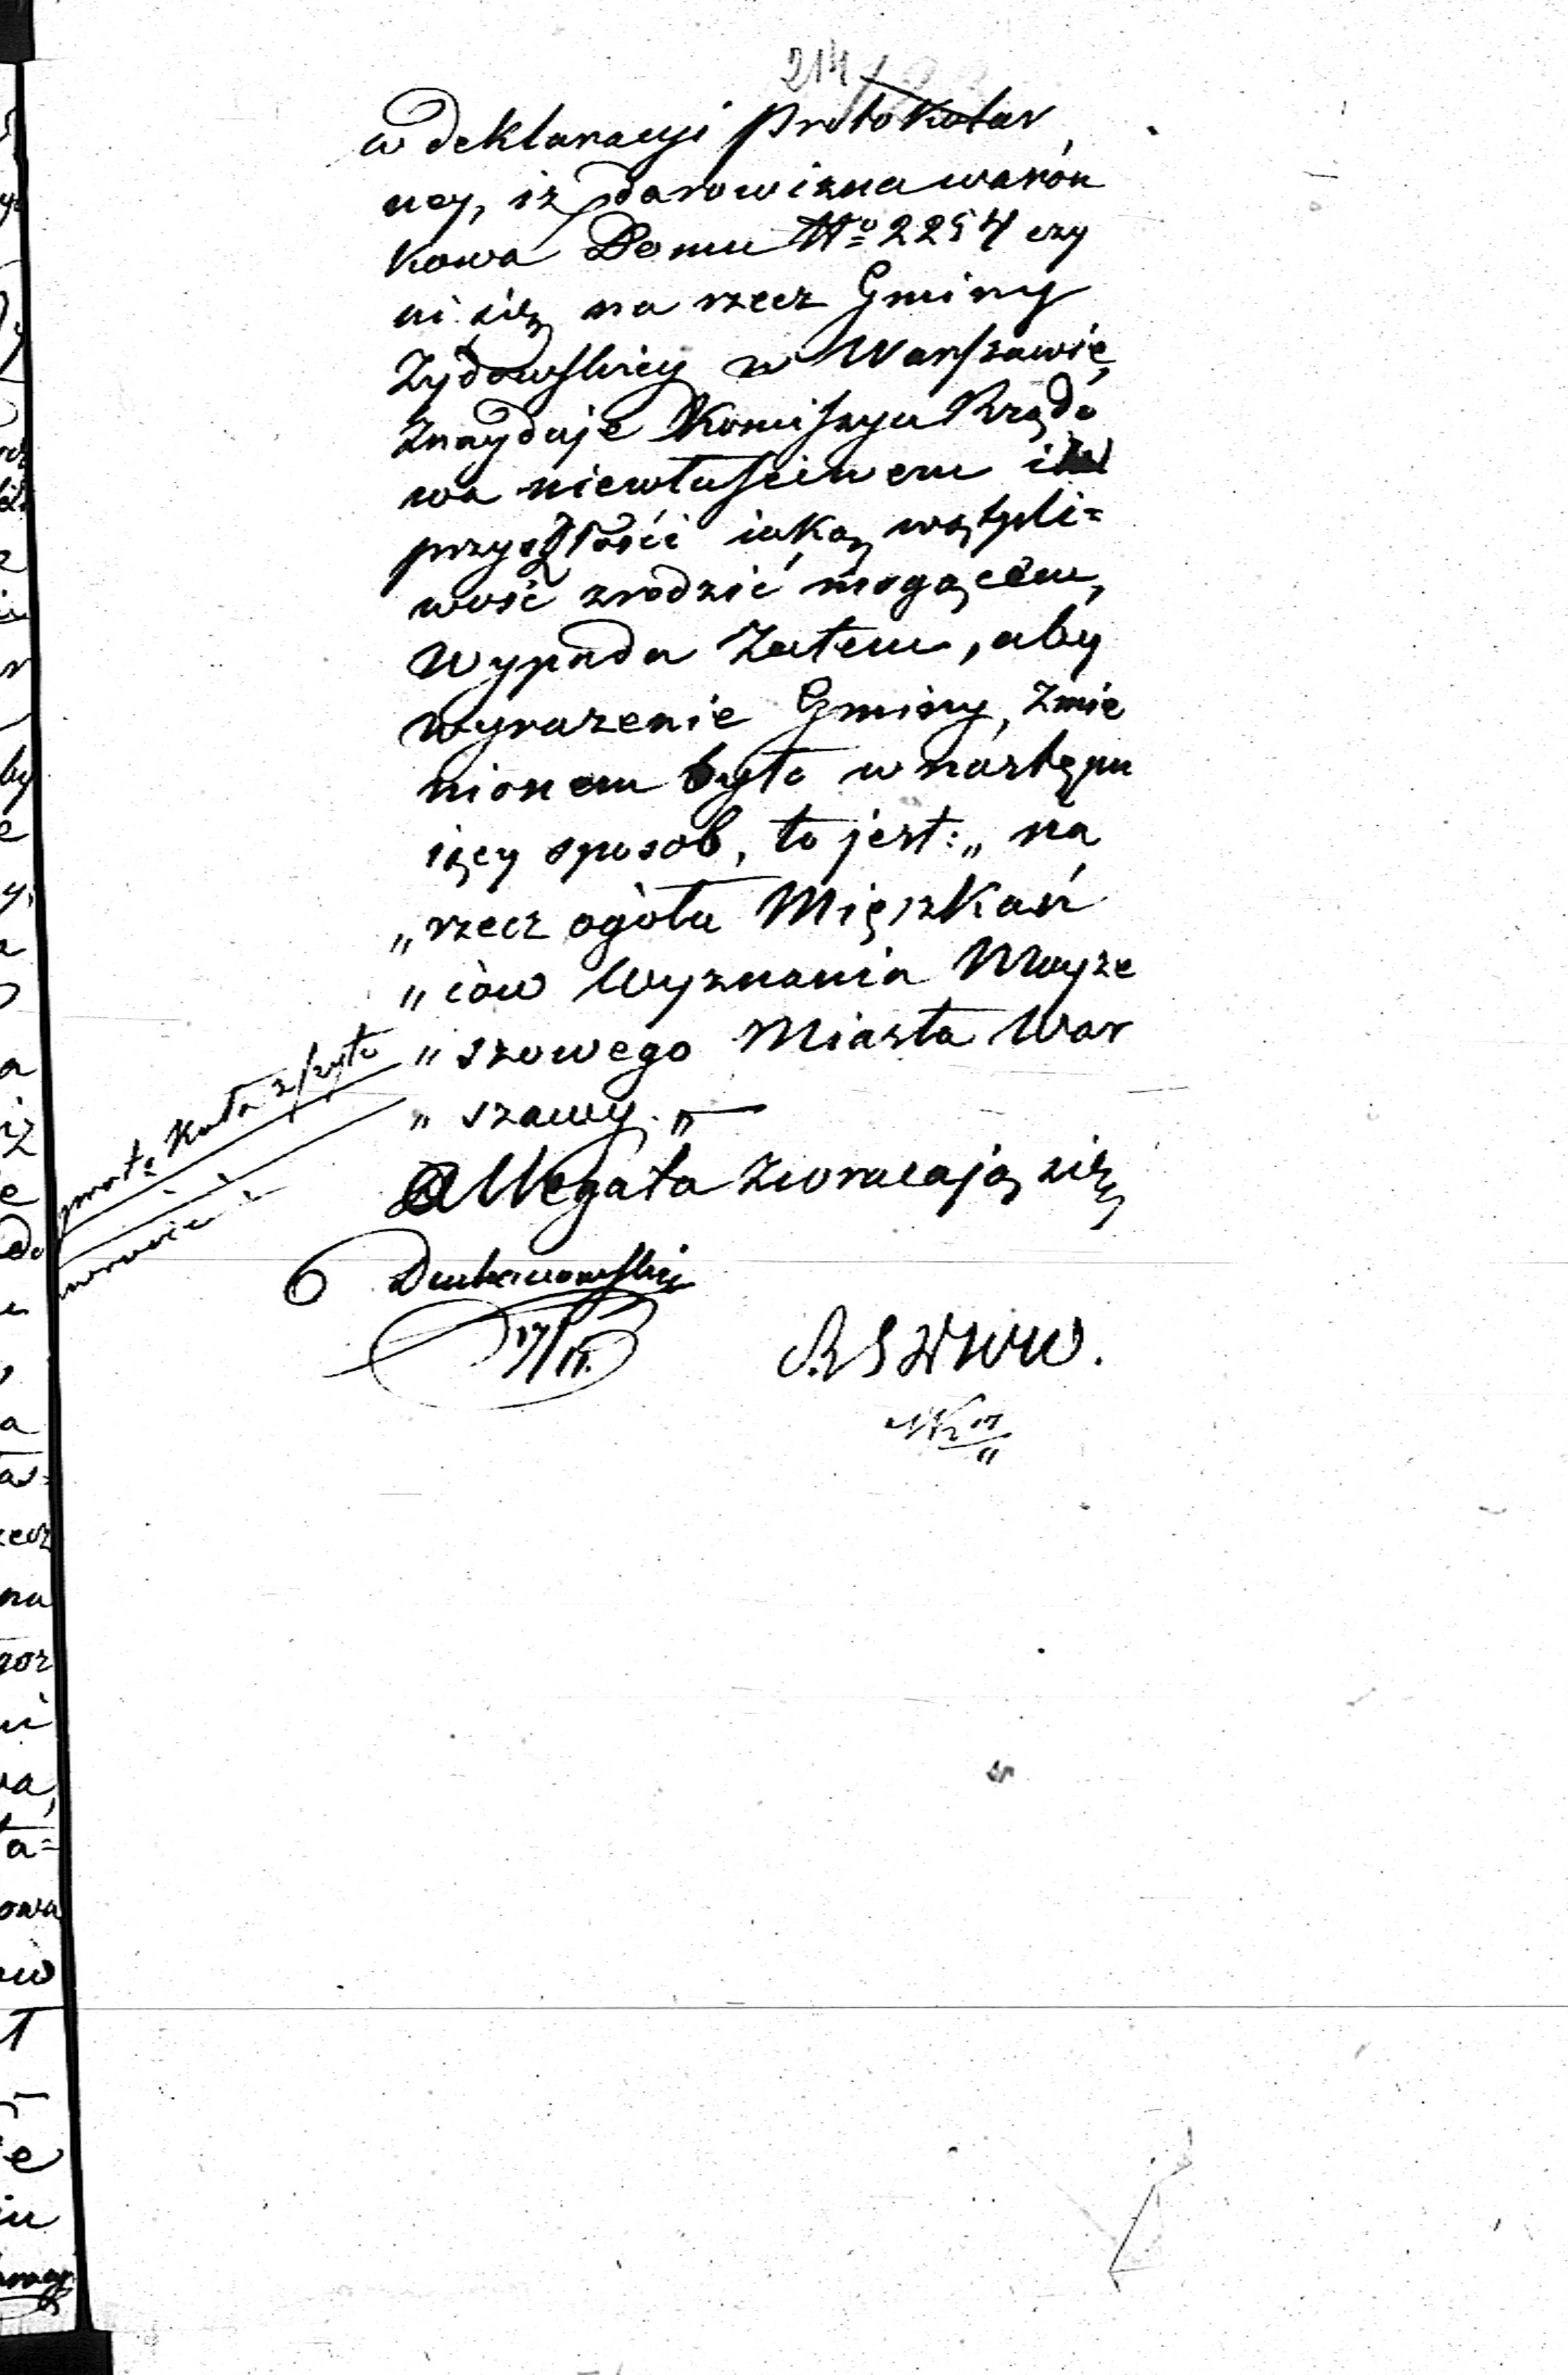 214
w deklaracyi protokolar
ney, iż darowizna warun
kowa Domu No 2254 czy
ni się na rzecz Gminy
Żydowskiey w Warszawie,
Znayduje Kommissya Rządo
wa niewłaściwem i w
przyszłości iaką wątpli=
wość zrodzić mogącem,
Wypada Zatem, aby
wyrażenie Gminy, zmie
nionem było w nastąpu
iący sposob, to jest: „ na
„ rzecz ogółu Mięszkań
„ ców Wyznania Mojże
„ szowego Miasta War
„ szawy. „ —
Allegata zwracają się
17/11.
RSWWW.
17/11